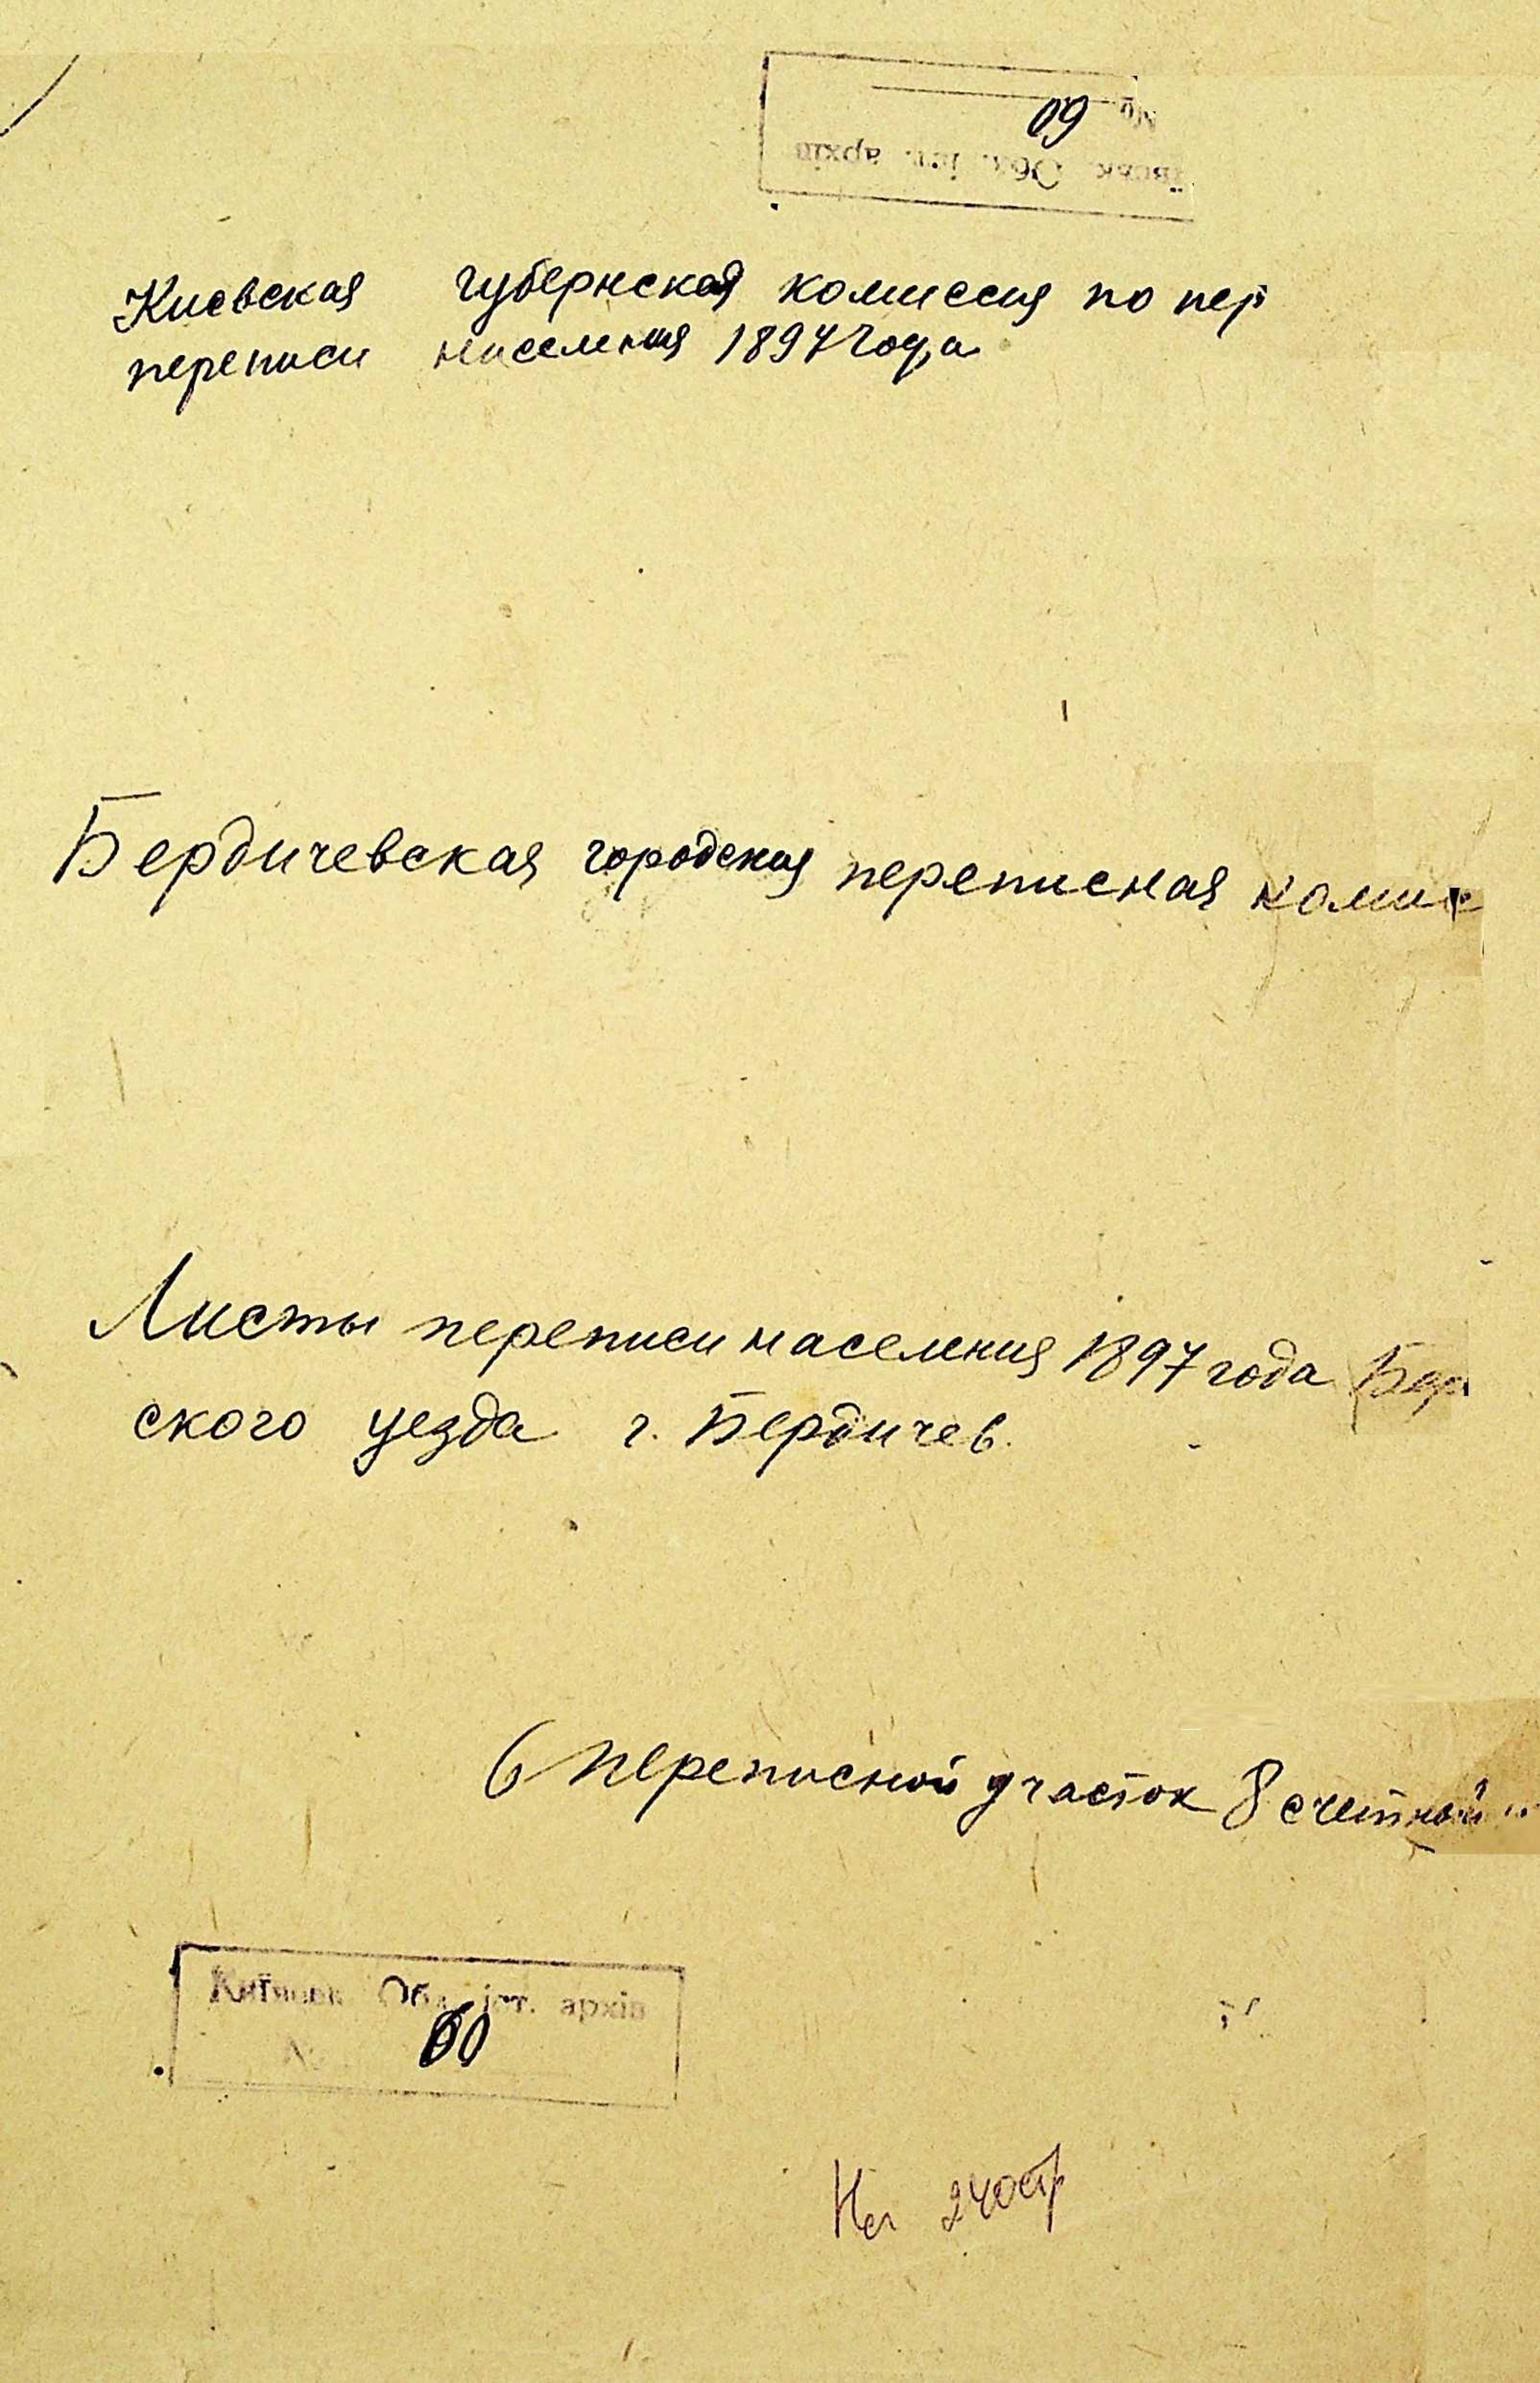 № 60
Обл. іст. архів
Киевская губернская комиссия по пер
переписи населения 1897 года
Бердичевская городская переписная комис
Листы переписи населения 1897 года Бер
ского уезда г. Бердичев.
6 переписной участок 8 счетный
Київськ. Обл. іст. архів
№ 60
На 240 стр